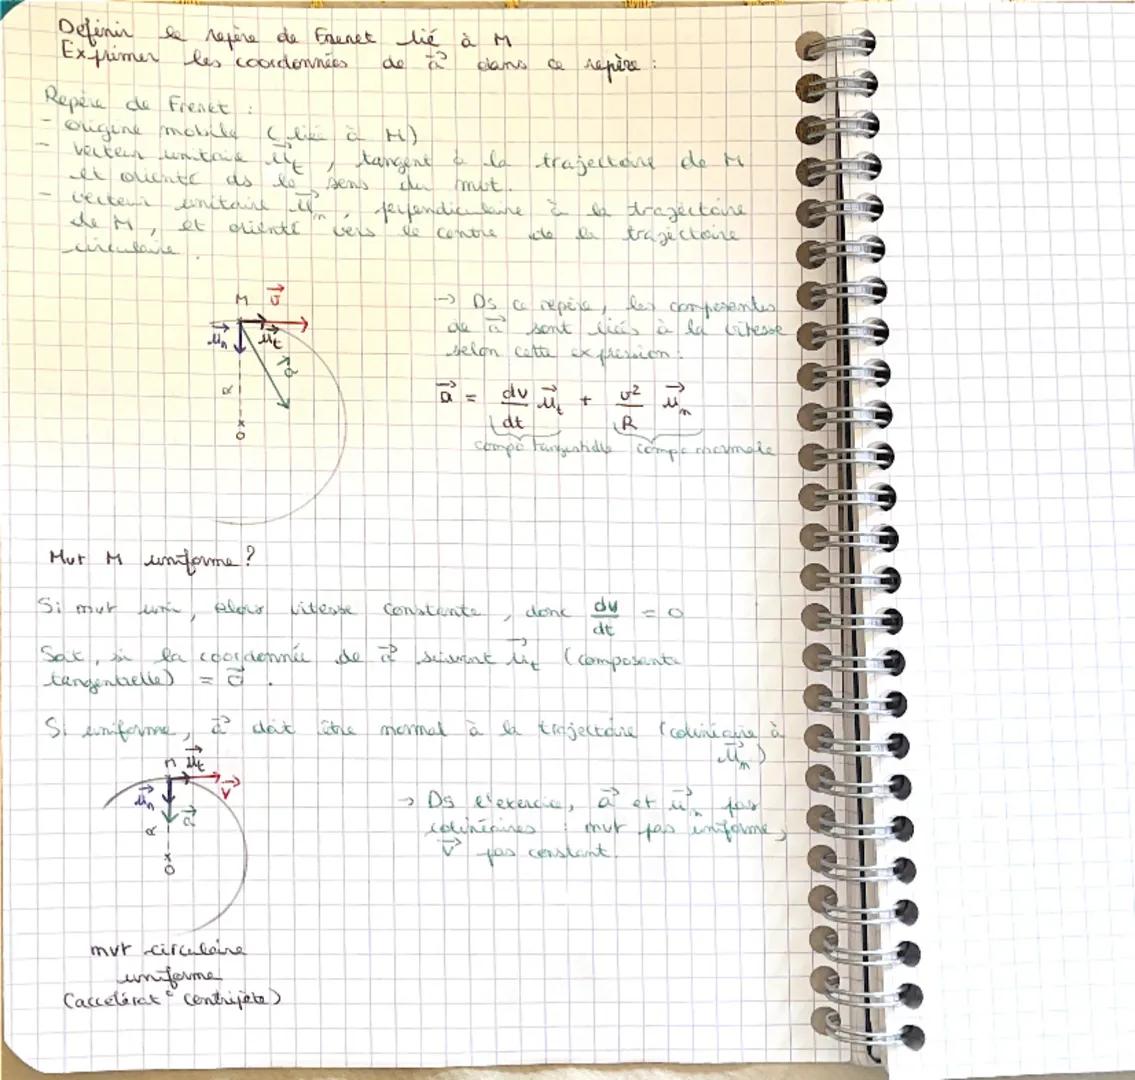 Définir le repère de Frenet lié à M
Exprimer les coordonnées de a⃗ dans ce repère :
Repère de Frenet :
- origine mobile (lié à M)
- vecteur unitaire u⃗t, tangent à la trajectoire de M
et orienté ds le sens du mvt.
- vecteur unitaire u⃗n, perpendiculaire à la trajectoire
de M, et orienté vers le centre de la trajectoire
circulaire.
M v⃗
u⃗n u⃗t
a⃗
R
O
→ Ds ce repère, les composantes
de a⃗ sont liées à la vitesse
selon cette expression :
a⃗ = dv/dt u⃗t + v²/R u⃗n
compo tangentielle compo normale
Mvt M uniforme ?
Si mvt uni, alors vitesse constante, donc dv/dt = 0
Soit, si la coordonnée de a⃗ suivant u⃗t (composante
tangentielle) = 0⃗.
Si uniforme, a⃗ doit être normal à la trajectoire (colinéaire à
u⃗n)
M u⃗t
v⃗
u⃗n a⃗
R
O
→ Ds l'exercice, a⃗ et u⃗n pas
colinéaires : mvt pas uniforme,
v⃗ pas constant.
mvt circulaire
uniforme
(accélérat° centripète)